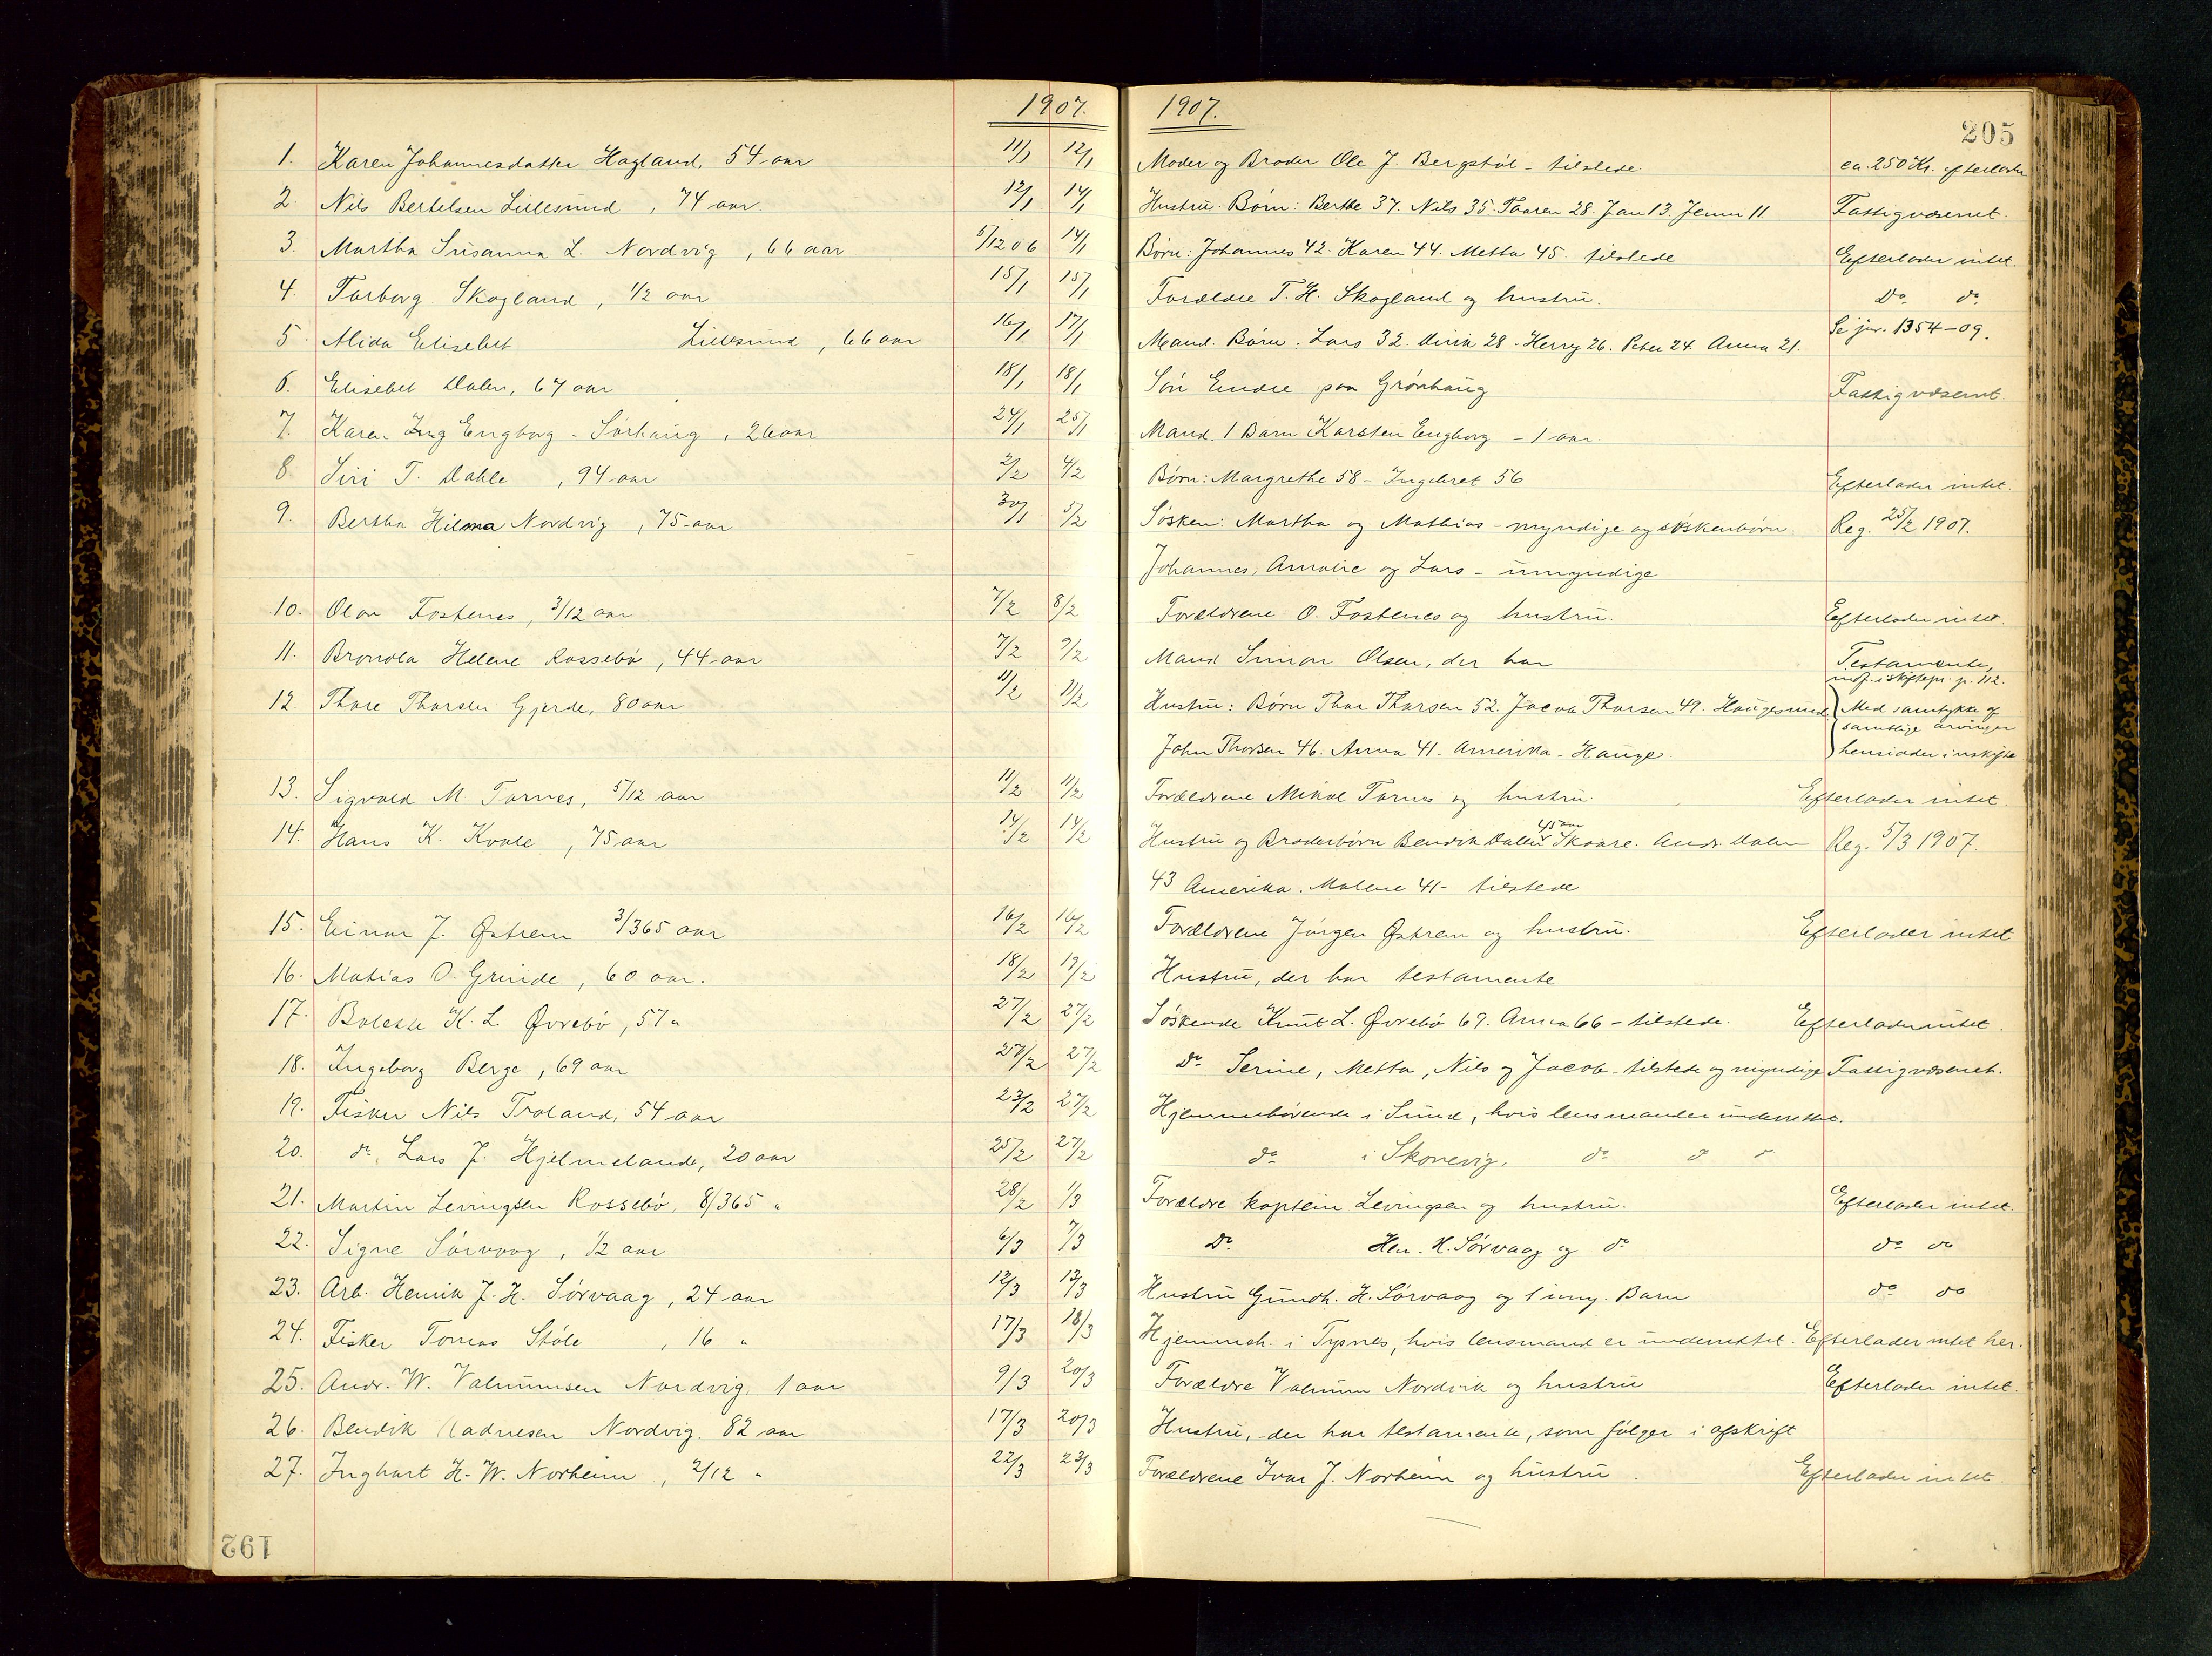 1907.
1. Karen Johannesdatter Hagland, 54 aar 11/1 12/1
2. Nils Bertelsen Lillesund, 74 aar. 12/1 14/1
3. Martha Susanna L. Nordvig, 66 aar 5/12 06 14/1
4. Torborg Skogland, 1/2 aar 15/1 15/1
5. Alida Elisebet Lillesund, 66 aar 16/1 17/1
6. Elisebet Dalen, 67 aar 18/1 18/1
7. Karen Ing Engborg - Sørhaug, 26 aar 24/1 25/1
8. Siri T. Dahle, 94 aar 2/2 4/2
9. Bertha Hilma Nordvig, 75 aar 30/1 5/2
10. Olav Fostenes, 3/12 aar 7/2 8/2
11. Helene Rossebø, 44 aar 7/2 9/2
12. Thore Thorsen Gjerde, 80 aar 11/2 11/2
13. Sigvald M. Tornes, 5/12 aar 11/2 11/2
14. Hans K. Kvale, 75 aar 14/2 14/2
15. Einar J. Østrem 3/365 aar 16/2 16/2
16. Matias O. Grinde, 60 aar. 18/2 19/2
17. Bolette K. L. Øvrebø, 57 " 27/2 27/2
18. Ingeborg Berge, 69 aar 27/2 27/2
19. Fisker Nils Troland, 54 aar 23/2 27/2
20. do. Lars J. Hjelmeland, 20 aar 25/2 27/2
21. Martin Levingsen Rossebø, 8/365 " 28/2 1/3
22. Signe Sørvaag, 1/2 aar 6/3 7/3
23. Arb. Henrik J. H. Sørvaag, 24 aar 12/3 13/3
24. Fisker Tomas Støle, 16 " 17/3 18/3
25. Andr. W. Valnumsen Nordvig, 1 aar 9/3 20/3
26. Bendik Nordvig. 82 aar 17/3 20/3
27. Inghart H. W. Norheim, 2/12 " 22/3 23/3
192
1907.
205
Moder og Broder Ole J. Bergstøl - tilstede. ca. 250 Kr. efterlader
Hustru. Børn: Berthe 37. Nils 35. Taaren 28. Jan 13. Jenni 11 Fattigvæsenet.
Børn: Johannes 42. Karen 44. Metta 45. tilstede Efterlader intet.
Forældre T. H. Skogland og hustru. Do. do.
Mand. Børn. Lars 32. Dirik 28 - Henry 26. Peter 24. Anna 21. Se jnr. 1354-09.
Søn Endre paa Grønhaug Fattigvæsenet.
Mand. 1 Barn Karsten Engborg - 1 aar.
Børn: Margrethe 58 - Ingebret 56 Efterlader intet.
Søsken: Martha og Mathias - myndige og søskenbørn Reg. 25/2 1907.
Johannes, Amalie og Lars - umyndige
Forældrene O. Fostenes og hustru. Efterlader intet.
Mand Simon Olsen, der har Testamente,
indf. i skiftepr. p. 112.
Hustru: Børn Thor Thorsen 52. Jacob Thorsen 49. Haugesund Med samtykke af
samtlige arvinger
John Thorsen 46. Anna 41. Amerika - Hauge. hensidder i uskifte
Forældrene Mikal Tornes og hustru. Efterlader intet.
45 aar
Hustru og Broderbørn Bendik Dalen Skaare. Andr. Dalen Reg. 5/3 1907.
43 Amerika. Malene 41 - tilstede
Forældrene Jørgen Østrem og hustru. Efterlader intet
Hustru, der har testamente
Søskende Knut L. Øvrebø 69. Anna 66 - tilstede. Efterlader intet.
do Serine, Metta, Nils og Jacob - tilstede og myndige Fattigvæsenet.
Hjemmehørende i Sund, hvis lensmand er underrettet.
do i Skonevig, do do do
Forældre kaptein Levingsen og hustru. Efterlader intet.
Do. Hen. H. Sørvaag og do do do
Hustru Gundh. H. Sørvaag og 1 umy. Barn do do
Hjemmeh. i Tysnes, hvis lensmand er underrettet. Efterlader intet her.
Forældre Valnum Nordvik og hustru Efterlader intet.
Hustru, der har testamente, som følger i afskrift
Forældrene Ivar J. Norheim og hustru. Efterlader intet.